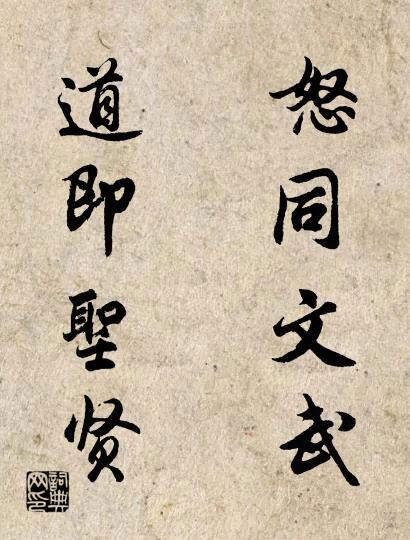 怒同文武
道即聖贤
詞典网印